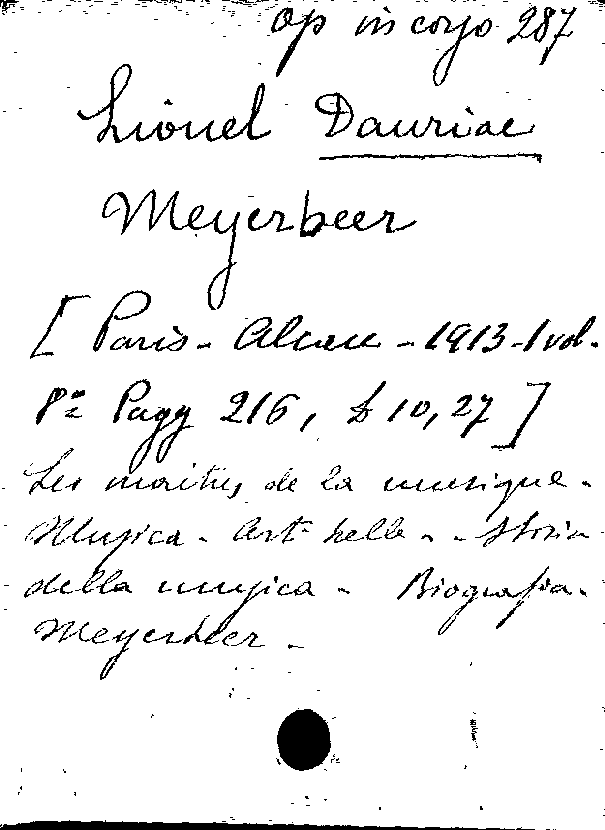 Op in corso 287
Lionel Dauriac
Meyerbeer
[ Paris - Alcan - 1913 - 1 vol.
8º Pagg 216, 10,27 ]
Les maitres de la musique -
Musica - Arti belle - - Storia
della musica - Biografia -
Meyerbeer -